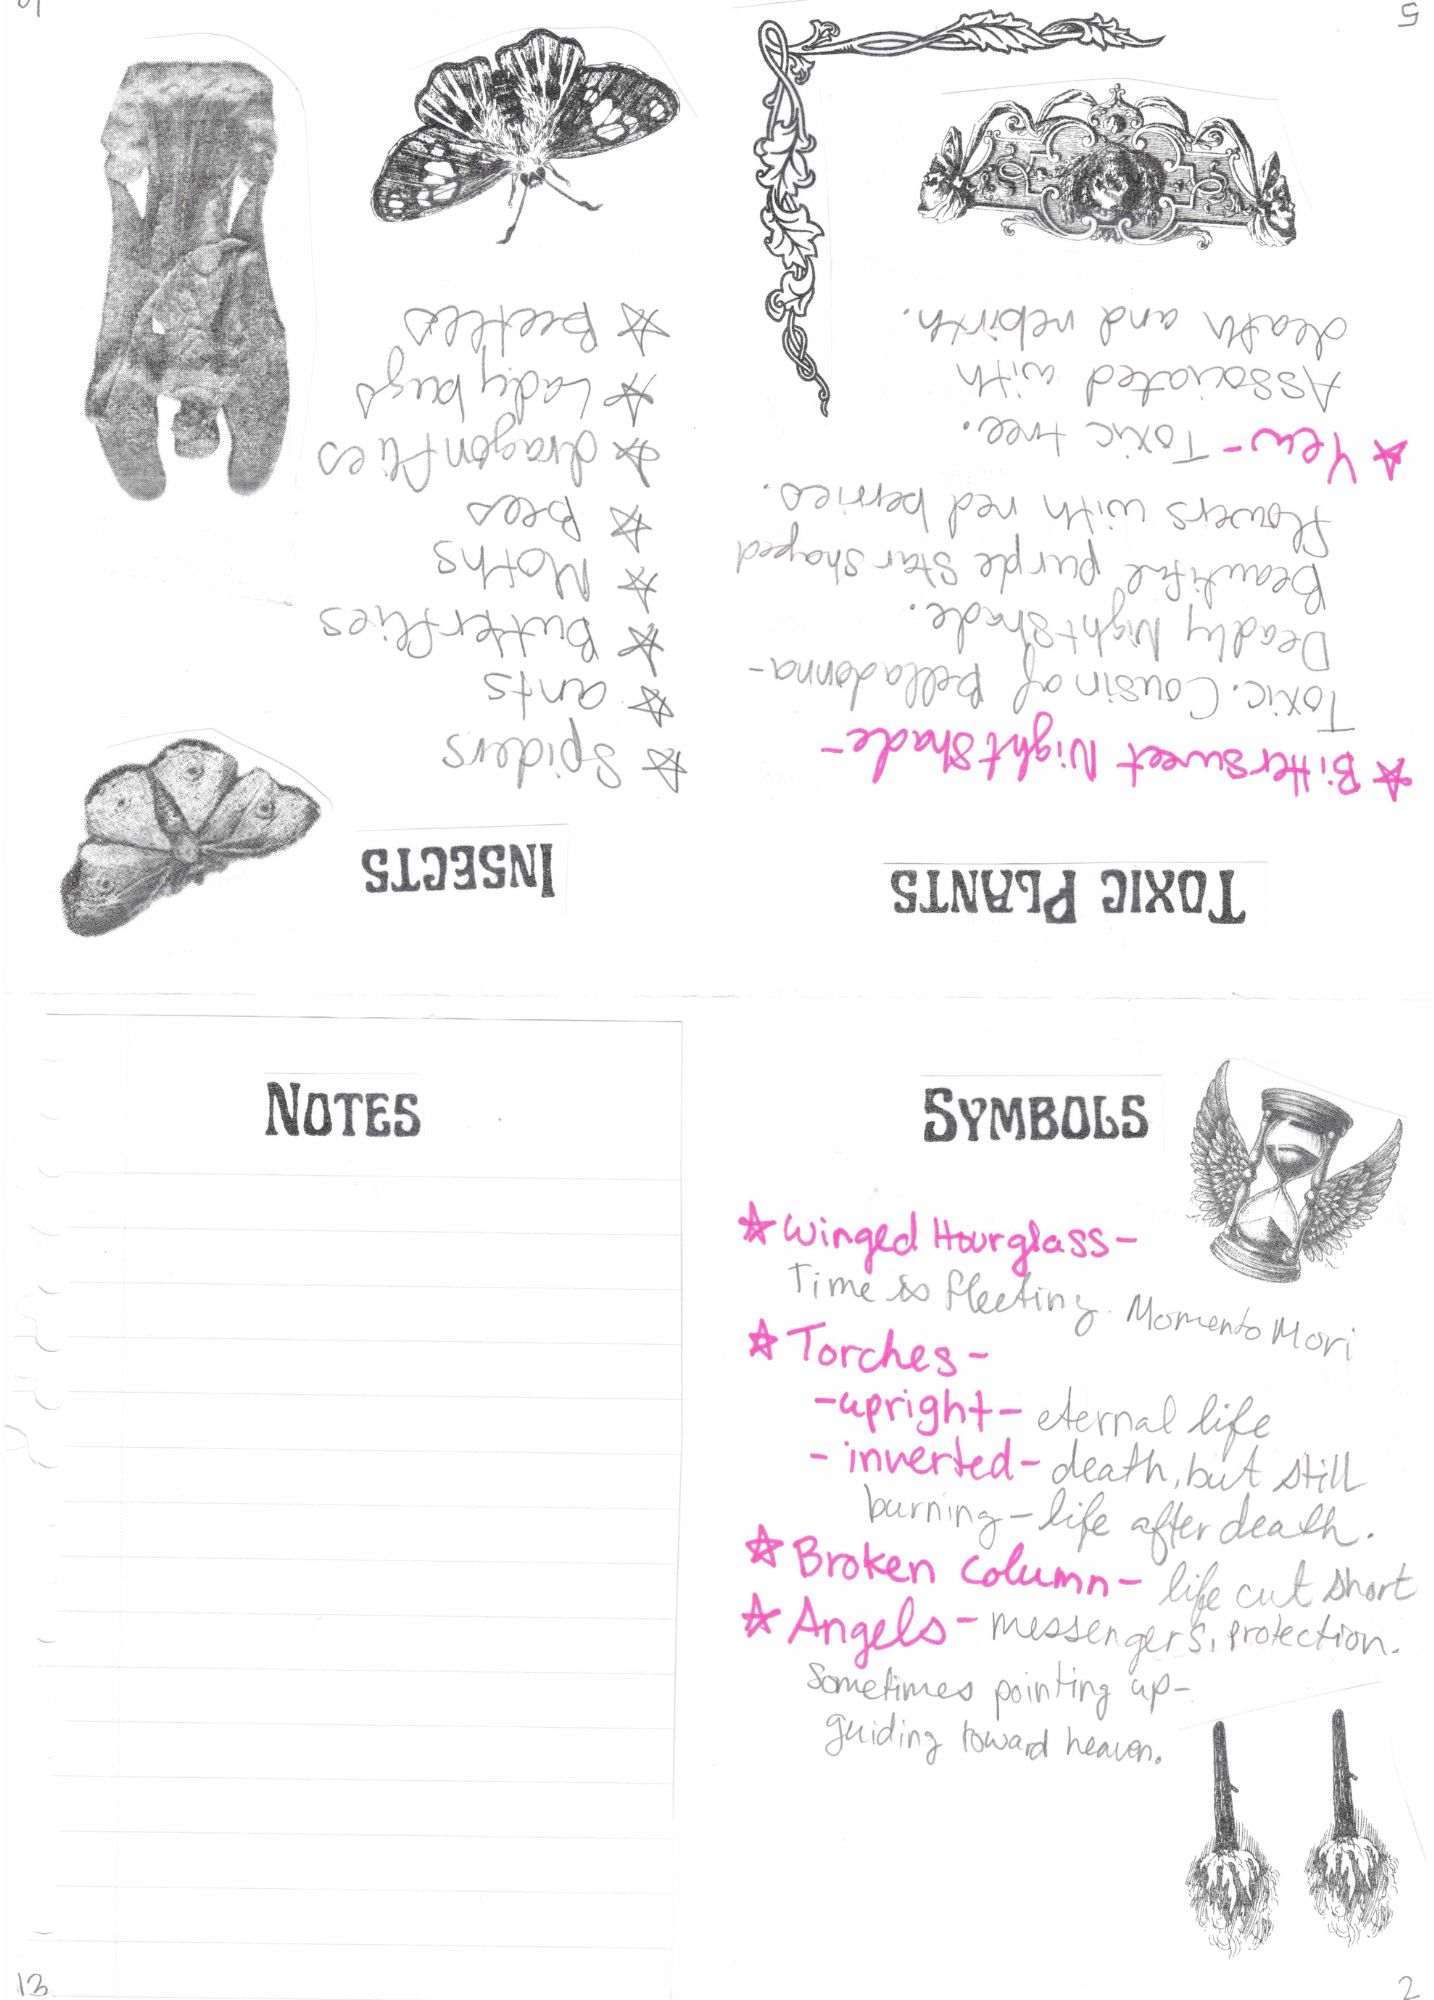 NOTES
13
SYMBOLS
Winged Hourglass-
Time is fleeting. Momento Mori
Torches-
-upright- eternal life
- inverted- death, but still
burning - life after death.
Broken column- life cut short
Angels - messengers, protection.
Sometimes pointing up-
guiding toward heaven.
2
TOXIC PLANTS
Bittersweet Nightshade-
Toxic. Cousin of Belladonna-
Deadly NightShade.
Beautiful purple star shaped
flowers with red berries.
Yew- Toxic tree.
Associated with
death and rebirth.
5
INSECTS
Spiders
ants
Butterflies
Moths
Bees
dragonflies
Ladybugs
Beetles